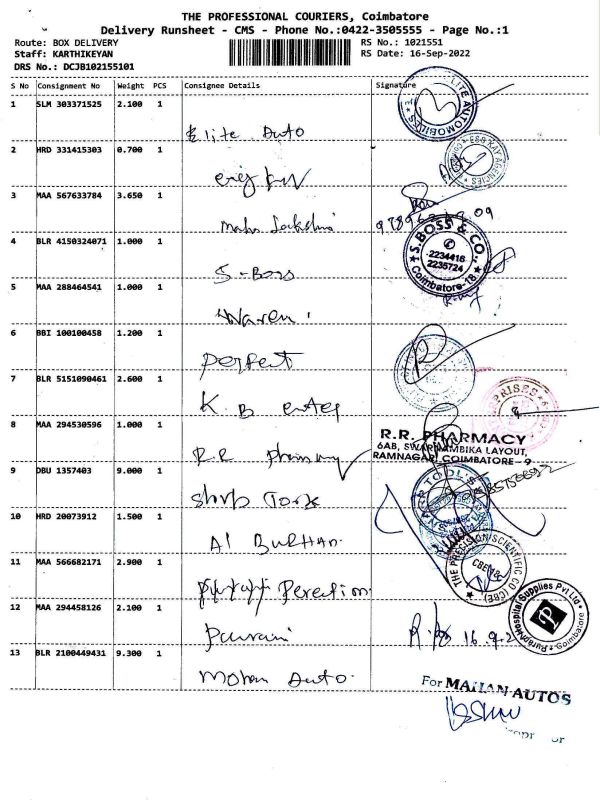 THE PROFESSIONAL COURIERS, Coimbatore
Delivery Runsheet - CMS - Phone No.:0422-3505555 - Page No.:1
Route: BOX DELIVERY
Staff: KARTHIKEYAN
DRS No.: DCJB102155101
RS No.: 1021551
RS Date: 16-Sep-2022
S No Consignment No Weight PCS Consignee Details Signature
1 SLM 303371525 2.100 1
Elite Auto
2 HRD 331415303 0.700 1
3 MAA 567633784 3.650 1
Maha Lakshmi
4 BLR 4150324071 1.000 1
S-Boss
S.BOSS & CO.
2234416
2235724
Coimbatore-18
5 MAA 288464541 1.000 1
Naren
6 BBI 100100458 1.200 1
Perfect
7 BLR 5151090461 2.600 1
K B enter
8 MAA 294530596 1.000 1
R.R Pharmacy
R.R. PHARMACY
6AB, SWARNAMBIKA LAYOUT,
RAMNAGAR, COIMBATORE - 9
9 DBU 1357403 9.000 1
Sharp Tools
10 HRD 20073912 1.500 1
Al BURHAN
11 MAA 566682171 2.900 1
THE PRECISION SCIENTIFIC CO (CBE)
12 MAA 294458126 2.100 1
Pourani
Hospital Supplies Pvt Ltd
Coimbatore
13 BLR 2100449431 9.300 1
Mohan Auto
For MAHAN AUTOS